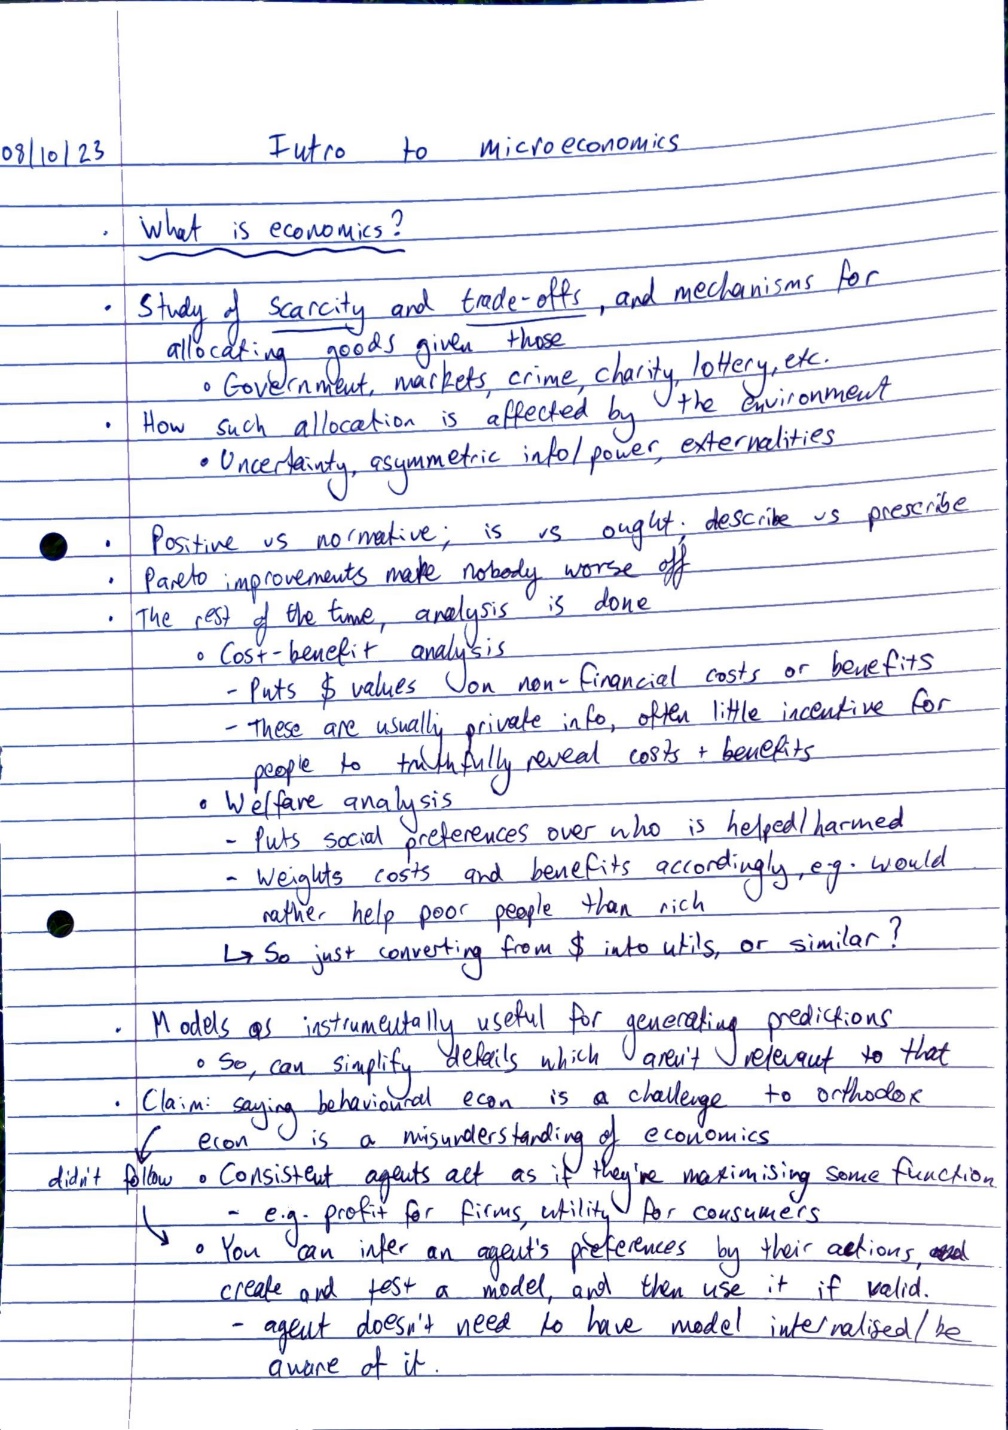 08/10/23 Intro to microeconomics
· What is economics?
· Study of scarcity and trade-offs, and mechanisms for
allocating goods given those
∘ Government, markets, crime, charity, lottery, etc.
· How such allocation is affected by the environment
• Uncertainty, asymmetric info/power, externalities
· Positive vs normative; is vs ought; describe vs prescribe
· Pareto improvements make nobody worse off
· The rest of the time, analysis is done
∘ Cost-benefit analysis
- Puts $ values on non-financial costs or benefits
- These are usually private info, often little incentive for
people to truthfully reveal costs + benefits
• Welfare analysis
- Puts social preferences over who is helped/harmed
- Weights costs and benefits accordingly, e.g. would
rather help poor people than rich
↳ So just converting from $ into utils, or similar?
· Models as instrumentally useful for generating predictions
∘ So, can simplify details which aren't relevant to that
· Claim: saying behavioural econ is a challenge to orthodox
econ is a misunderstanding of economics
didn't follow ∘ Consistent agents act as if they're maximising some function
- e.g. profit for firms, utility for consumers
∘ You can infer an agent's preferences by their actions,
create and test a model, and then use it if valid.
- agent doesn't need to have model internalised/be
aware of it.